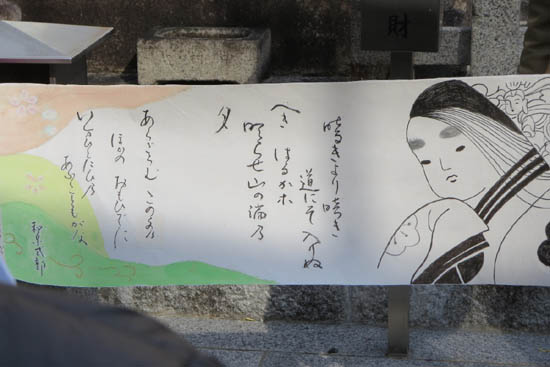 財
暗きより暗き
道にそ入りぬ
へきはるかに
照らせ山の端乃
月
あらざらむこの世乃
ほかのおもひでに
いまひとたび乃
あふこともがな
和泉式部